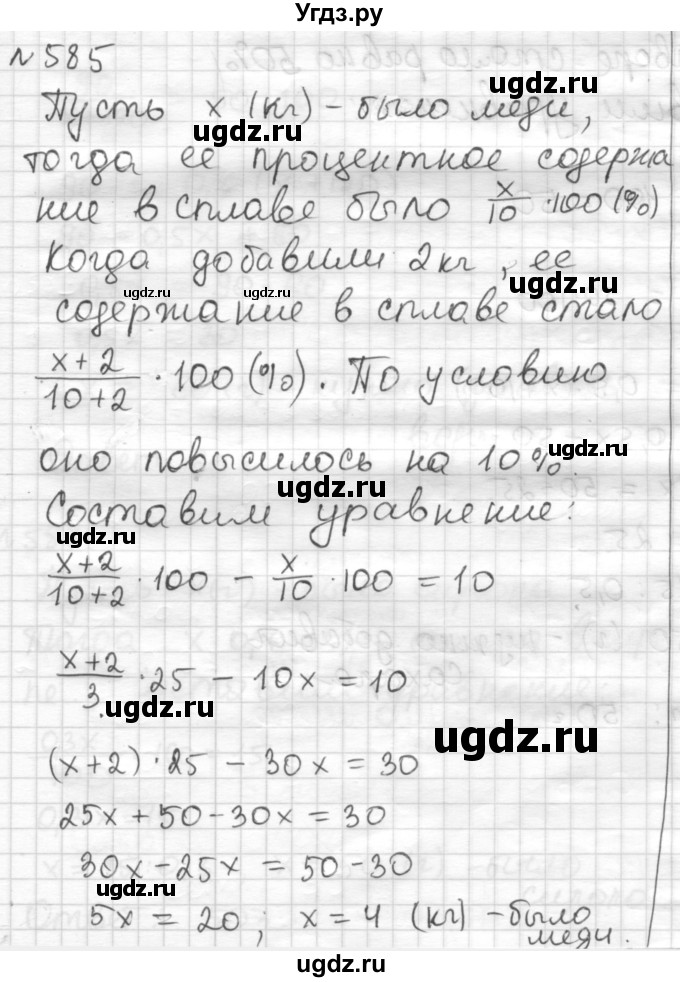 Угдз.ру
№585
Пусть x (кг) - было меди,
тогда ее процентное содержа
ние в сплаве было x/10 · 100 (%)
Когда добавили 2 кг, ее
содержание в сплаве стало
x+2/10+2 · 100 (%). По условию
оно повысилось на 10%.
Составим уравнение:
x+2/10+2 · 100 - x/10 · 100 = 10
x+2/3 · 25 - 10x = 10
(x+2) · 25 - 30x = 30
25x + 50 - 30x = 30
30x - 25x = 50 - 30
5x = 20; x = 4 (кг) - было
меди.
ugdz.ru
ugdz.ru
ugdz.ru
ugdz.ru
ugdz.ru
ugdz.ru
ugdz.ru
ugdz.ru
ugdz.ru
ugdz.ru
ugdz.ru
ugdz.ru
ugdz.ru